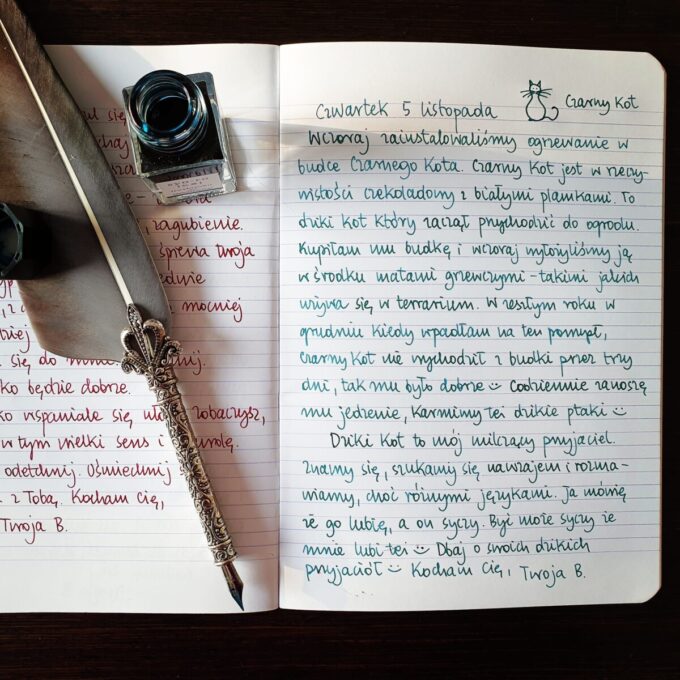 się
zagubienie.
śpiewa Twoja
mocniej
się do
będzie dobrze.
wspaniale się zobaczysz,
w tym wielki sens i
odetchnij. Uśmiechnij
z Tobą. Kocham Cię,
Twoja B.
Czwartek 5 listopada
Czarny Kot
Wczoraj zainstalowaliśmy ogrzewanie w
budce Czarnego Kota. Czarny Kot jest w rzeczy-
wistości czekoladowy z białymi plamkami. To
dziki kot który zaczął przychodzić do ogrodu.
Kupiłam mu budkę i wczoraj wyłożyliśmy ją
w środku matami grzewczymi - takimi jakich
używa się w terrarium. W zeszłym roku w
grudniu kiedy wpadłam na ten pomysł,
Czarny Kot nie wychodził z budki przez trzy
dni, tak mu było dobrze :) Codziennie zanoszę
mu jedzenie, karmimy też dzikie ptaki :)
Dziki Kot to mój milczący przyjaciel.
Znamy się, szukamy się nawzajem i rozma-
wiamy, choć różnymi językami. Ja mówię
że go lubię, a on syczy. Być może syczy że
mnie lubi też :) Dbaj o swoich dzikich
przyjaciół :) Kocham Cię, Twoja B.